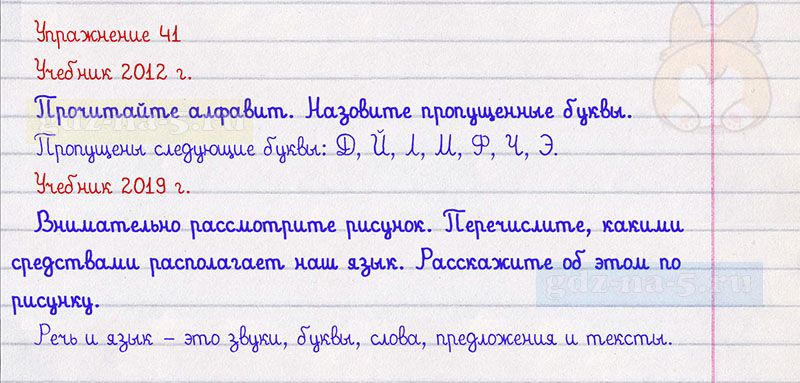 Упражнение 41
Учебник 2012 г.
Прочитайте алфавит. Назовите пропущенные буквы.
gdz-na-5.ru
Пропущены следующие буквы: Д, Й, Л, М, Ф, Ч, Э.
Учебник 2019 г.
Внимательно рассмотрите рисунок. Перечислите, какими
средствами располагает наш язык. Расскажите об этом по
gdz-na-5.ru
рисунку.
Речь и язык – это звуки, буквы, слова, предложения и тексты.